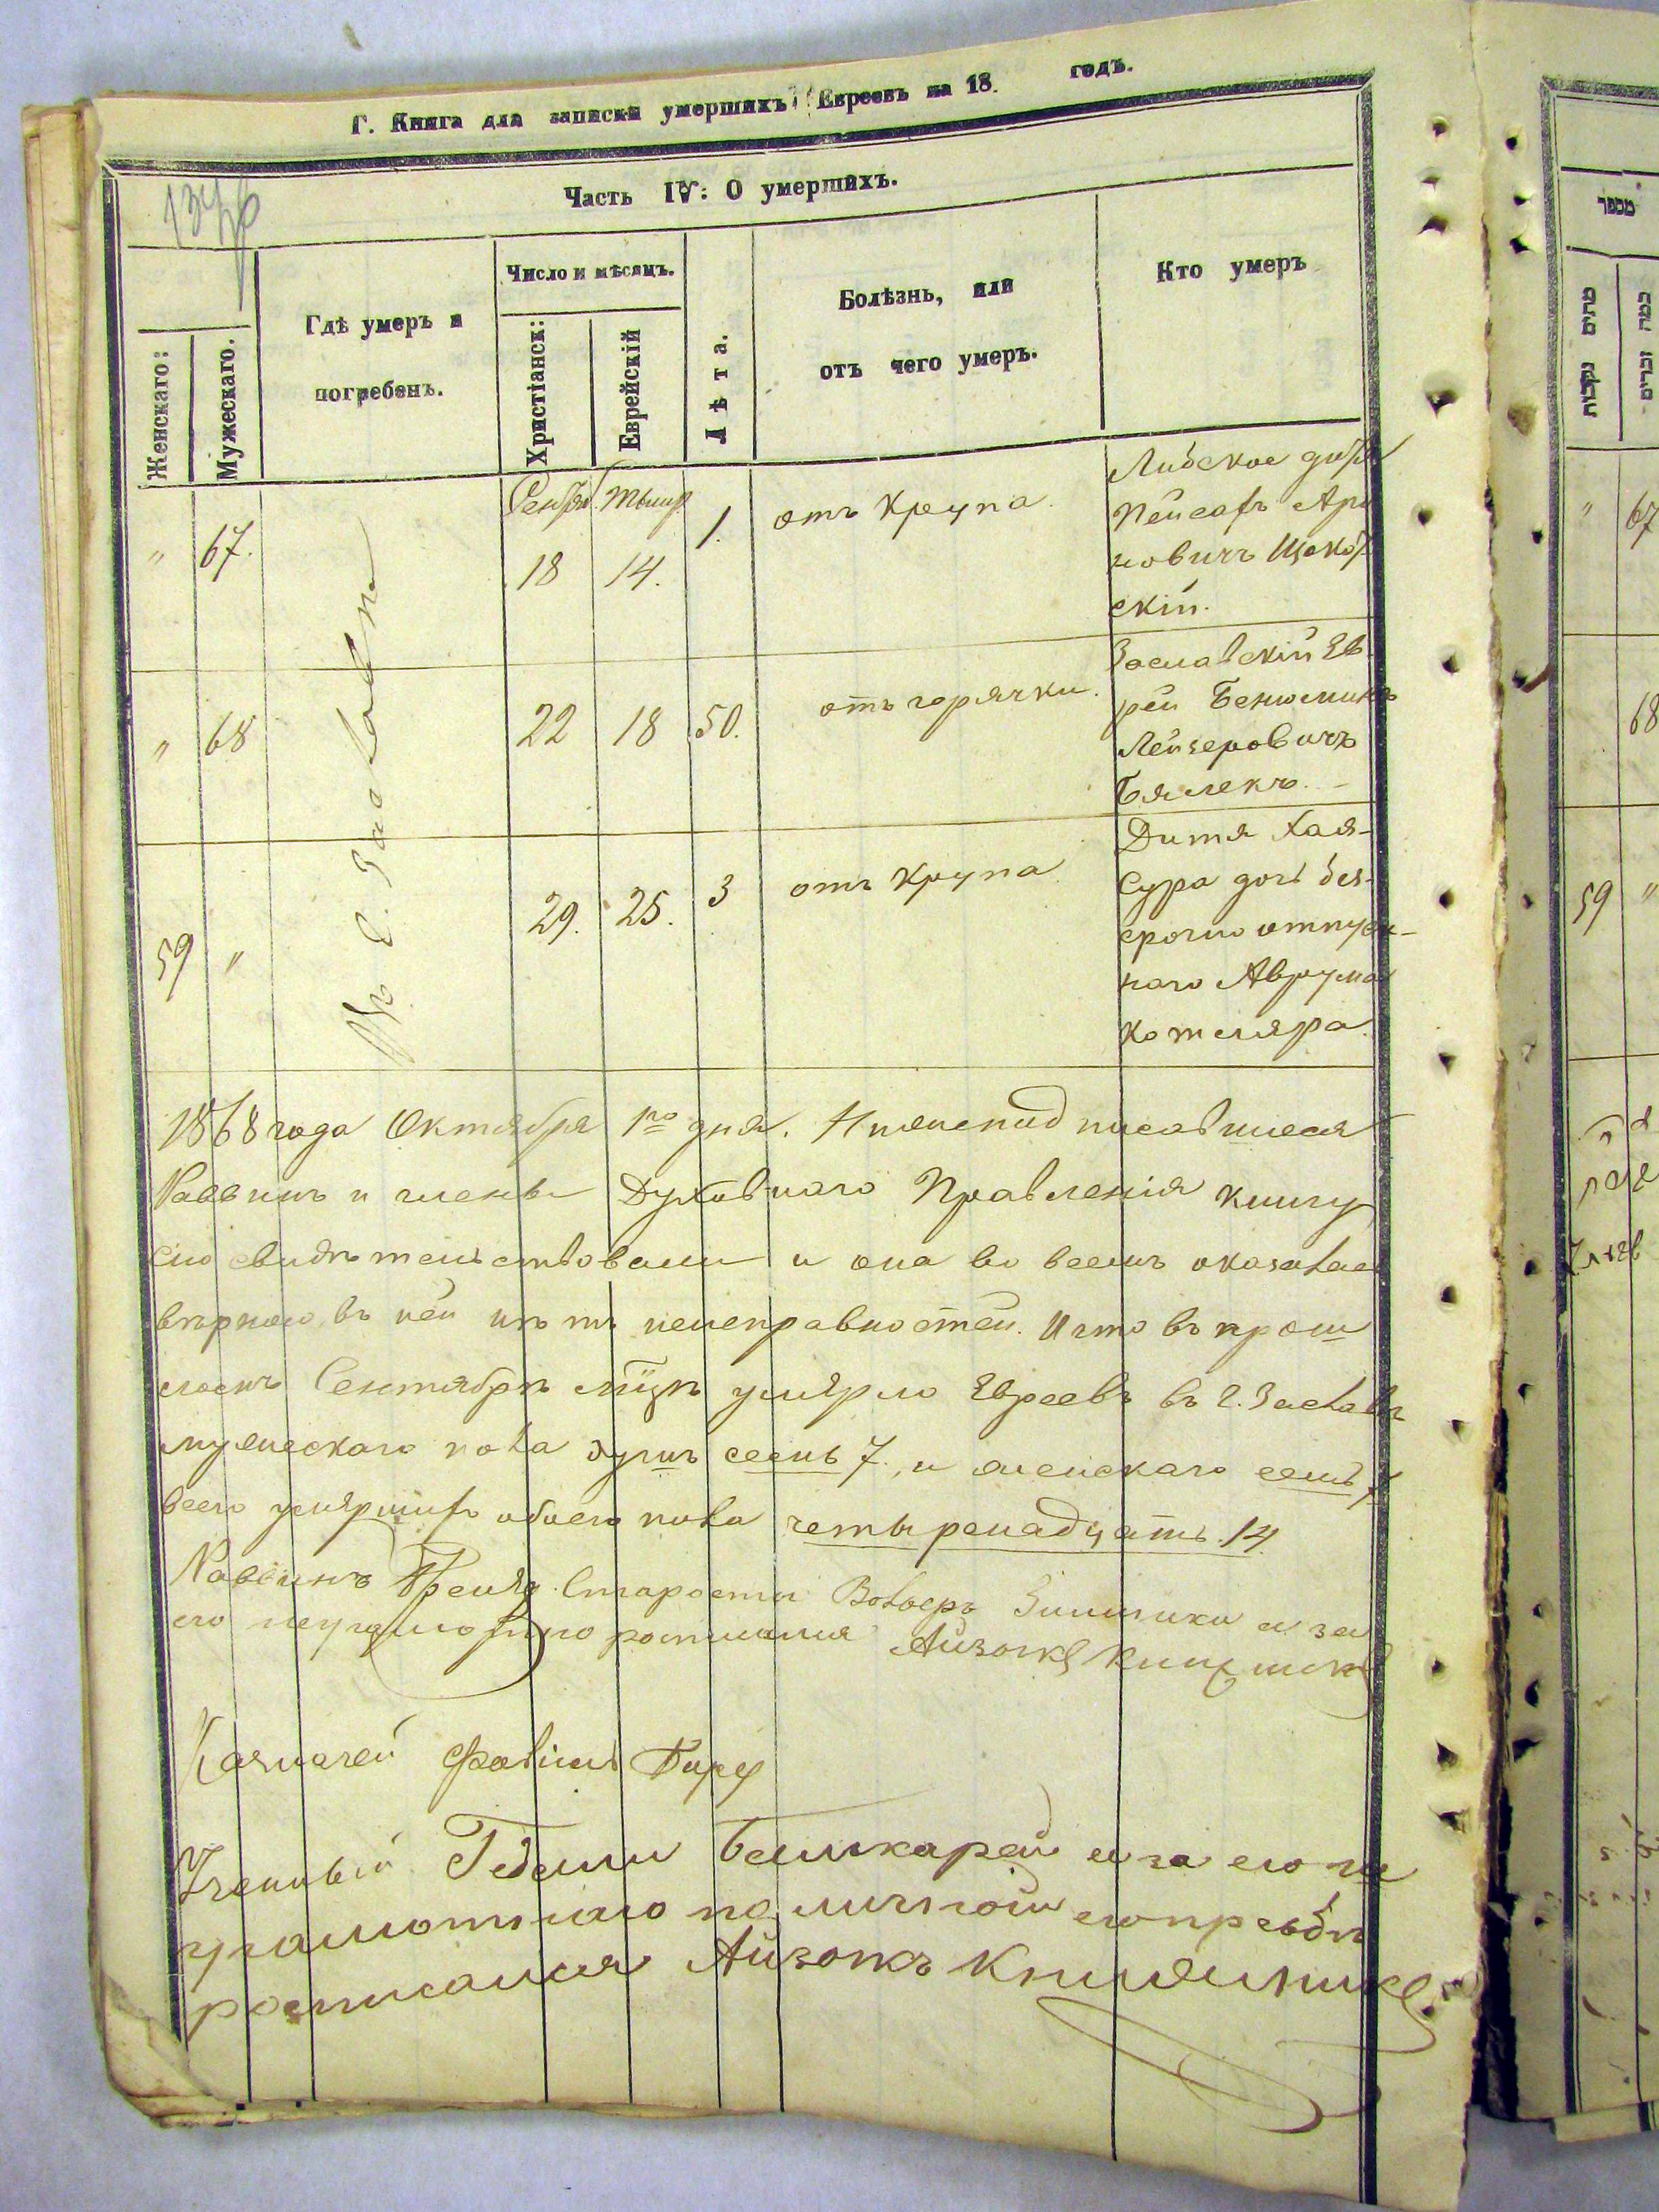 Г. Книга для записки умершихъ Евреевъ на 18 годъ.
Часть IV: О умершихъ.
Женскаго:
Мужескаго.
Гдѣ умеръ и
погребенъ.
Число и мѣсяцъ.
Христіанск:
Еврейскій
Лѣта.
Болѣзнь, или
отъ чего умеръ.
Кто умеръ
Сентяб. Тышр.
" 67. 18 14. 1. отъ крупа.
Пейсахъ Аро
новичъ
скій.
" 68 22 18 50. отъ горячки.
Заславскій Ев
рей Бенюминъ
Лейзеровичъ
Бялекъ. -
59 " 29. 25. 3 отъ крупа.
Дитя Хая-
Сура дочь без-
срочно отпуск-
наго Аврума
Котляра.
Въ г. Заславлѣ
1868 года Октября 1го дня. Нижеподписавшіеся
Раввинъ и члены Духовнаго Правленія книгу
сію свидѣтельствовали и она во всемъ оказалась
вѣрною, въ ней нѣтъ неисправностей. И что въ прош
ломъ Сентябрѣ мцѣ умярло Евреевъ въ г. Заславлѣ
мужескаго пола душъ семь 7., и женскаго семь 7
всего умяршихъ обоего пола четыренадцать. 14
Раввинъ Староста Волберъ а за
его неграмотнаго росписался Айзокъ
Казначей
Ученный Башкарей и за его не
грамотнаго по личной его прозбѣ
росписался Айзокъ
מספר
מתים נקבות
כמה זכרים
" 67
68
59 "